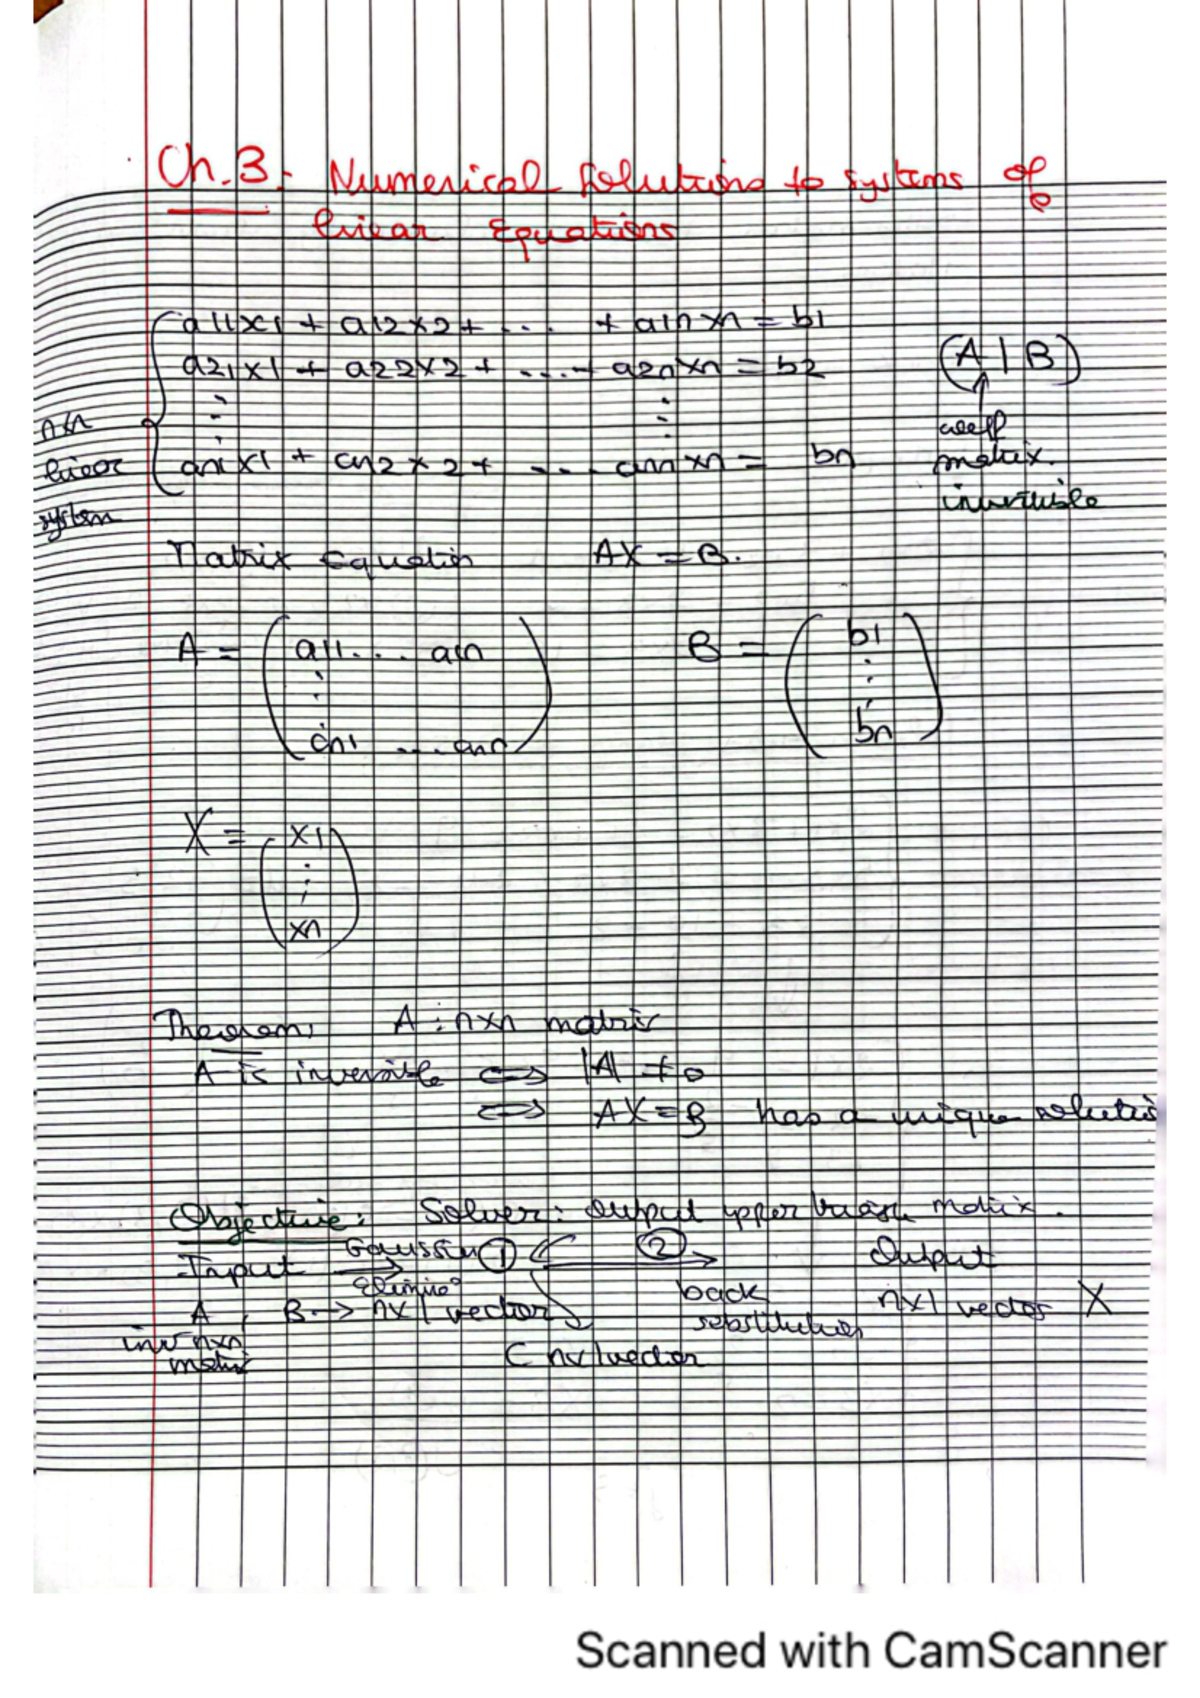 Ch.3: Numerical Solutions to systems of
linear Equations
a11x1 + a12x2 + .... + a1n xn = b1
a21x1 + a22x2 + ....+ a2nxn = b2
(A | B)
nxn
linear
system
coeff
matrix.
invertible
an1x1 + an2x2 + .... ann xn = bn
Matrix Equation AX = B.
A = ( a11 ... a1n
an1 ... ann )
B = ( b1
bn )
X = ( x1
xn )
Theorem: A : nxn matrix
A is inversible <=> |A| ≠ 0
<=> AX = B has a unique
Objective: Solver: output upper matrix.
Input Gaussian ① ② Output
A , B → nx1 vector back substitution nx1 vector X
inv nxn
matrix
C nx1 vector
Scanned with CamScanner